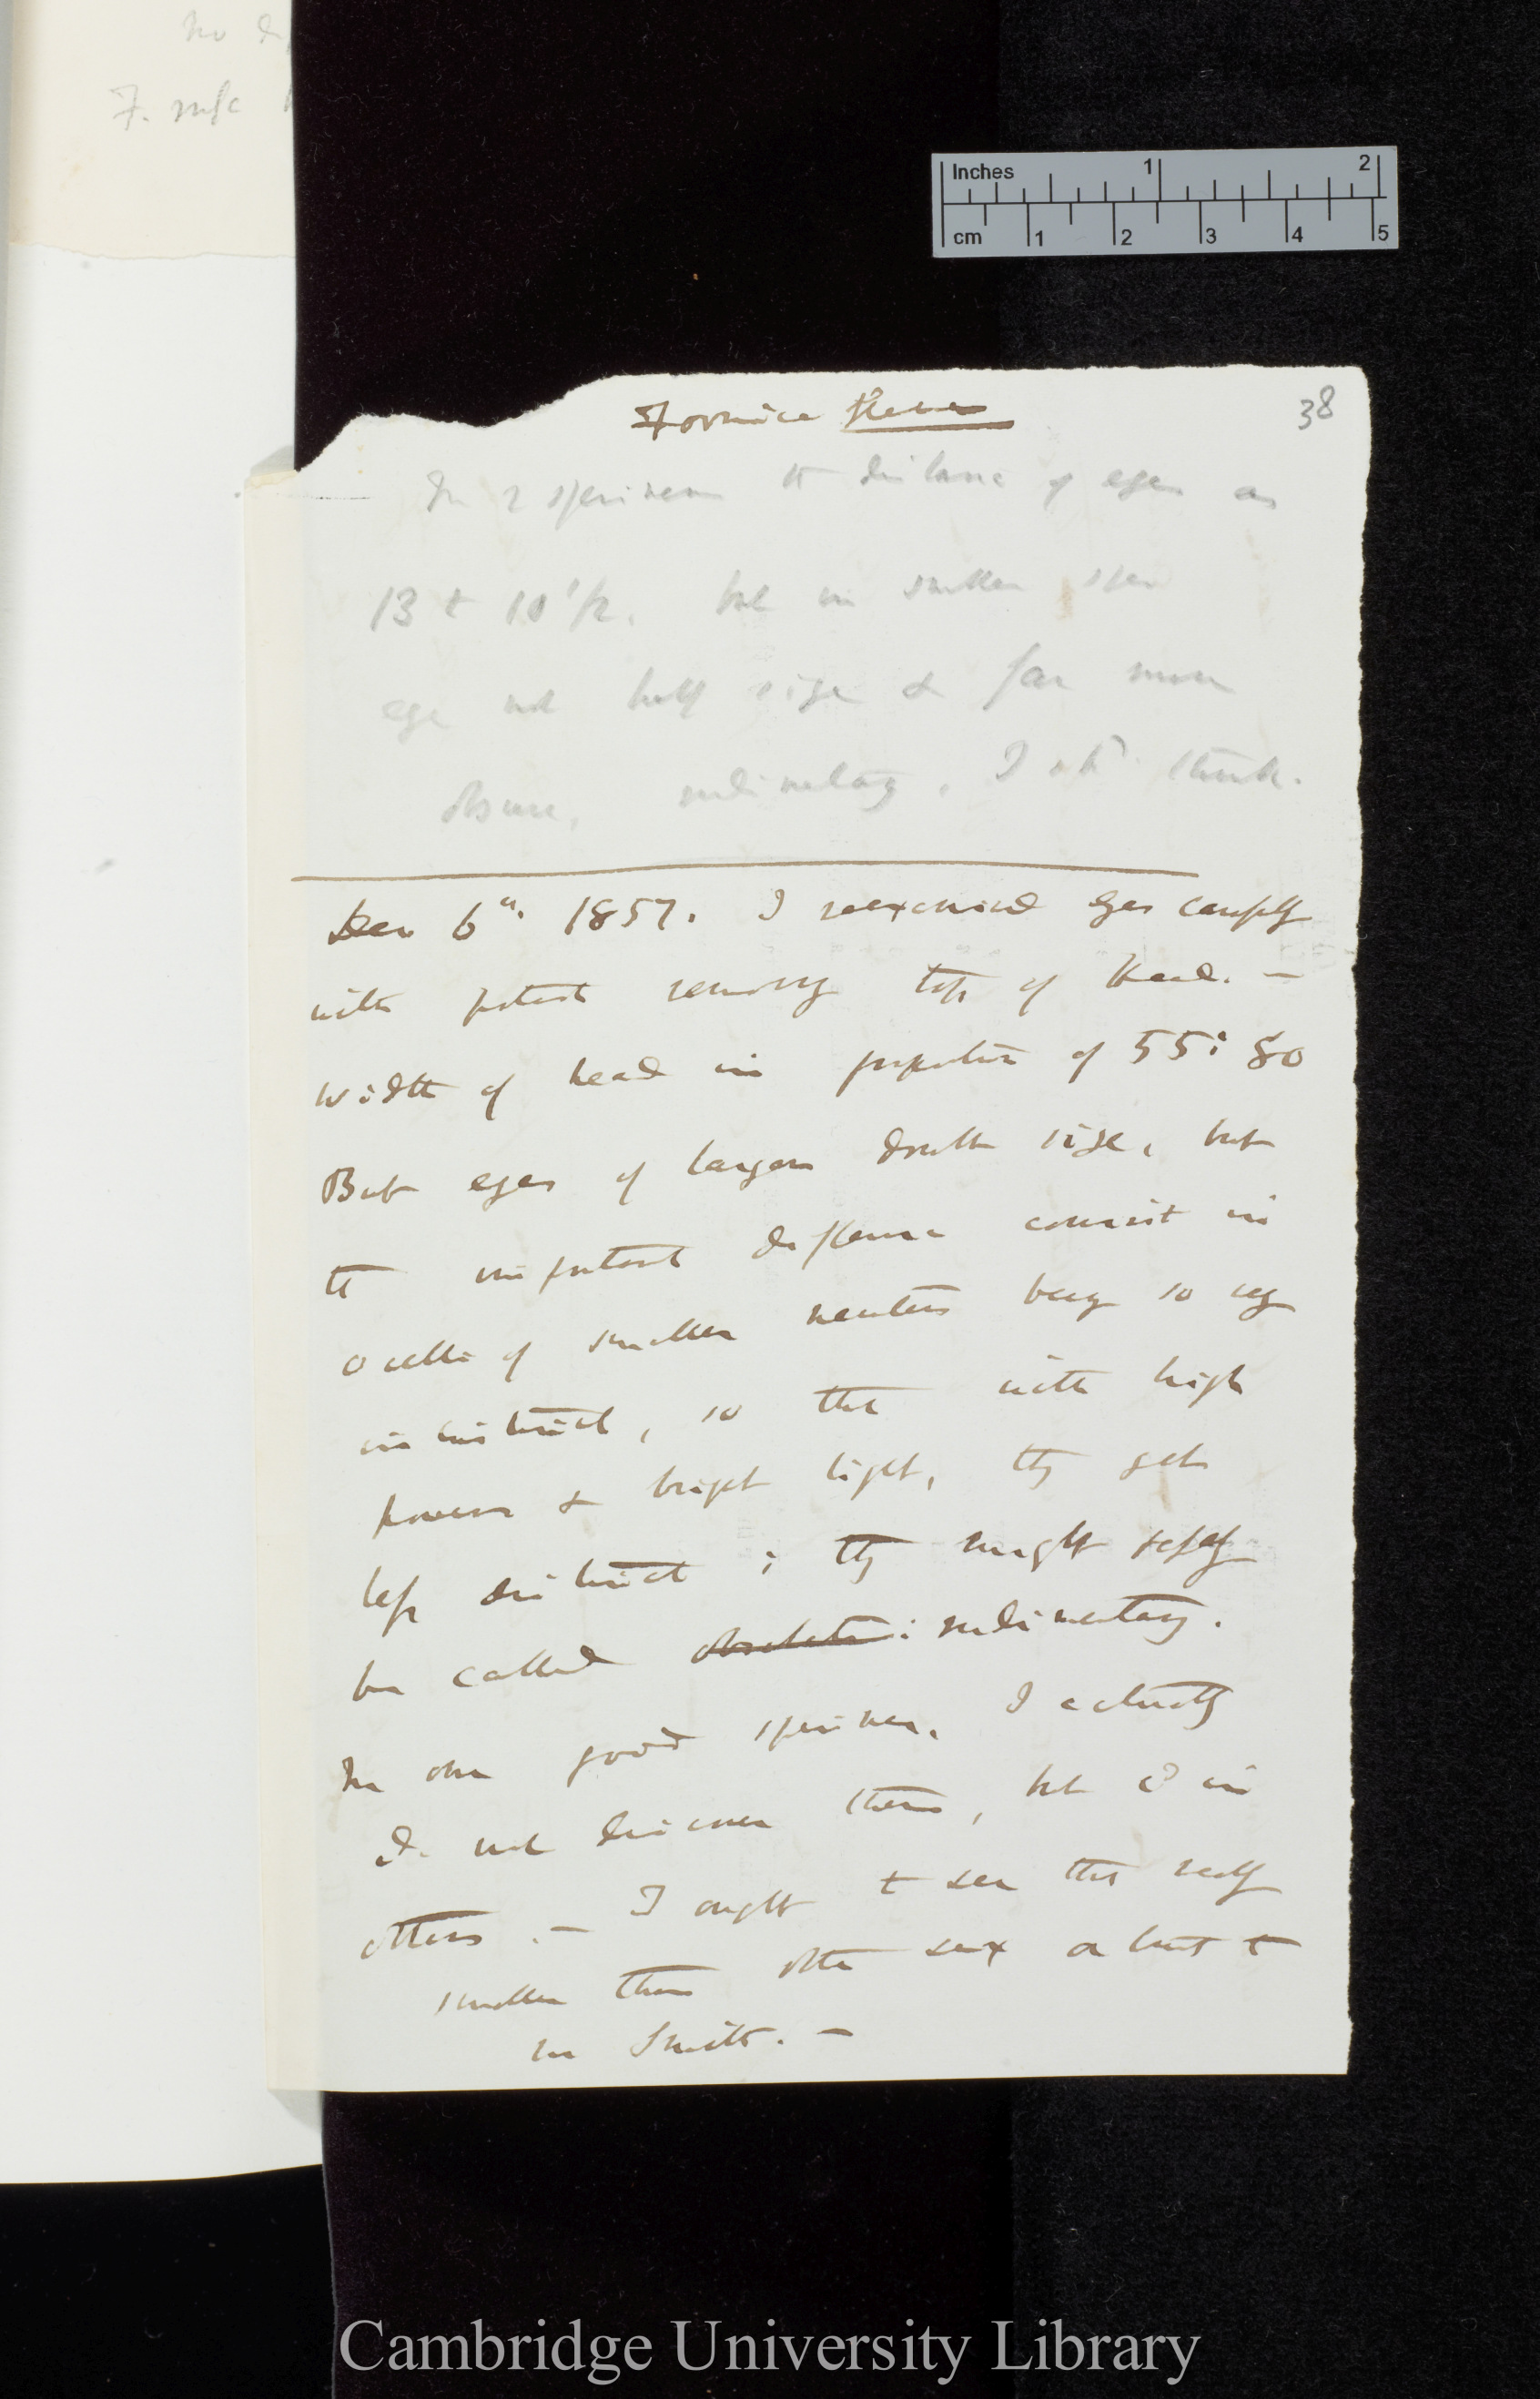 no
F. rufa
Inches 1 2
cm 1 2 3 4 5
38
Formica flava
In 2 specimens the distance of eyes as
13 to 10 1/2. but in smaller
eye not half size & far more
obscure, rudimentary, I shd. think.
Dec 6th. 1857. I reexamined eyes carefully
with potash removing top of Head. —
Width of head in proportion of 55:80
But eyes of larger double size, but
the important difference consist in
ocelli of smaller neuters being so very
indistinct, so that with high
power & bright light, they get
less distinct; they might safely
be called obsolete: rudimentary.
In one good specimen, I actually
cd. not discover them, but cd in
others. — I ought to see this really
smaller than other sex about to
Mr Smith. —
Cambridge University Library